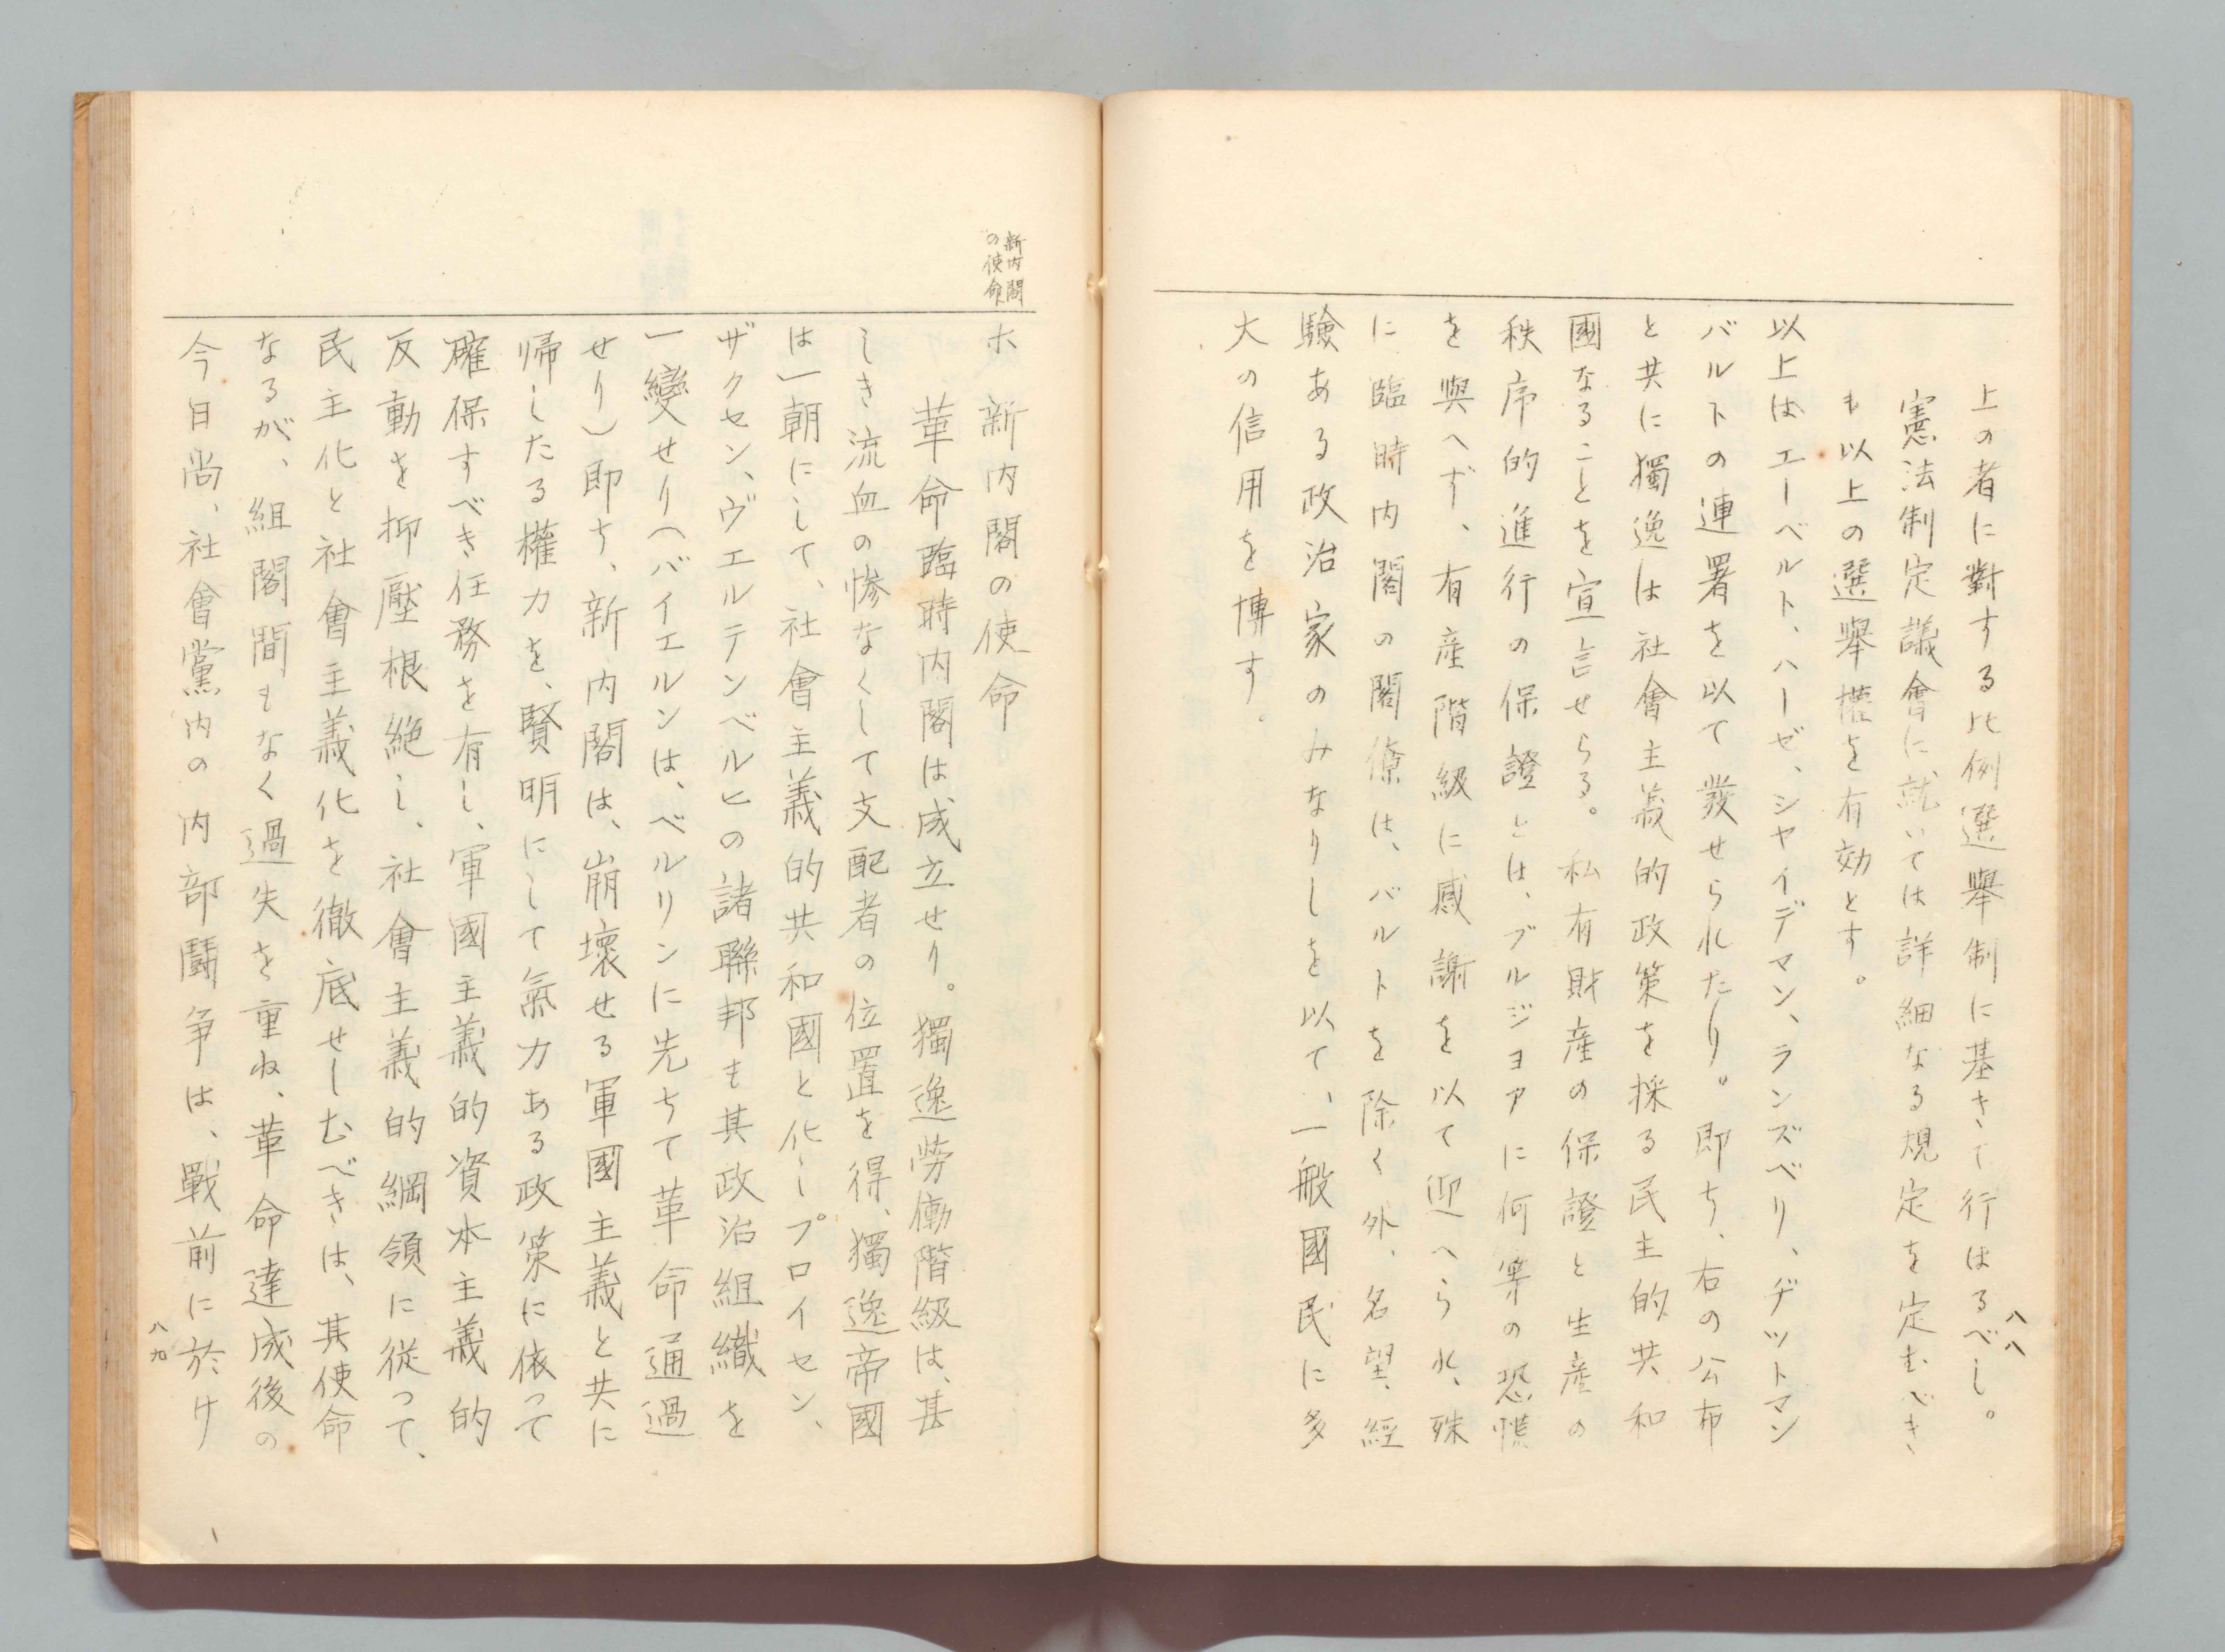 八八
上の者に對する比例選舉制に基きて行はるべし。
憲法制定議會に就いては詳細なる規定を定むべき
も以上の選舉權を有効とす。
以上はエーベルト、ハーゼ、シヤイデマン、ランズベリ、ヂツトマン
バルトの連署を以て發せられたり。即ち、右の公布
と共に獨逸は社會主義的政策を採る民主的共和
國なることを宣言せらる。私有財産の保證と生産の
秩序的進行の保證とは、ブルジヨアに何等の恐慌
を與へず、有産階級に感謝を以て迎へられ、殊
に臨時内閣の閣僚は、バルトを除く外、名望、經
驗ある政治家のみなりしを以て、一般國民に多
大の信用を博す。
新内閣
の使命
ホ 新内閣の使命
革命臨時内閣は成立せり。獨逸勞働階級は、甚
しき流血の惨なくして支配者の位置を得、獨逸帝國
は一朝にして、社會主義的共和國と化しプロイセン、
ザクセン、ヴエルテンベルヒの諸聯邦も其政治組織を
一變せり（バイエルンは、ベルリンに先ちて革命通過
せり）即ち、新内閣は、崩壞せる軍國主義と共に
帰したる權力を、賢明にして氣力ある政策に依って
確保すべき任務を有し、軍國主義的資本主義的
反動を抑壓根絶し、社會主義的綱領に從って、
民主化と社會主義化を徹底せしむべきは、其使命
なるが、組閣間もなく過失を重ね、革命達成後の
今日尚、社會黨内の内部鬪争は、戰前に於け
八九